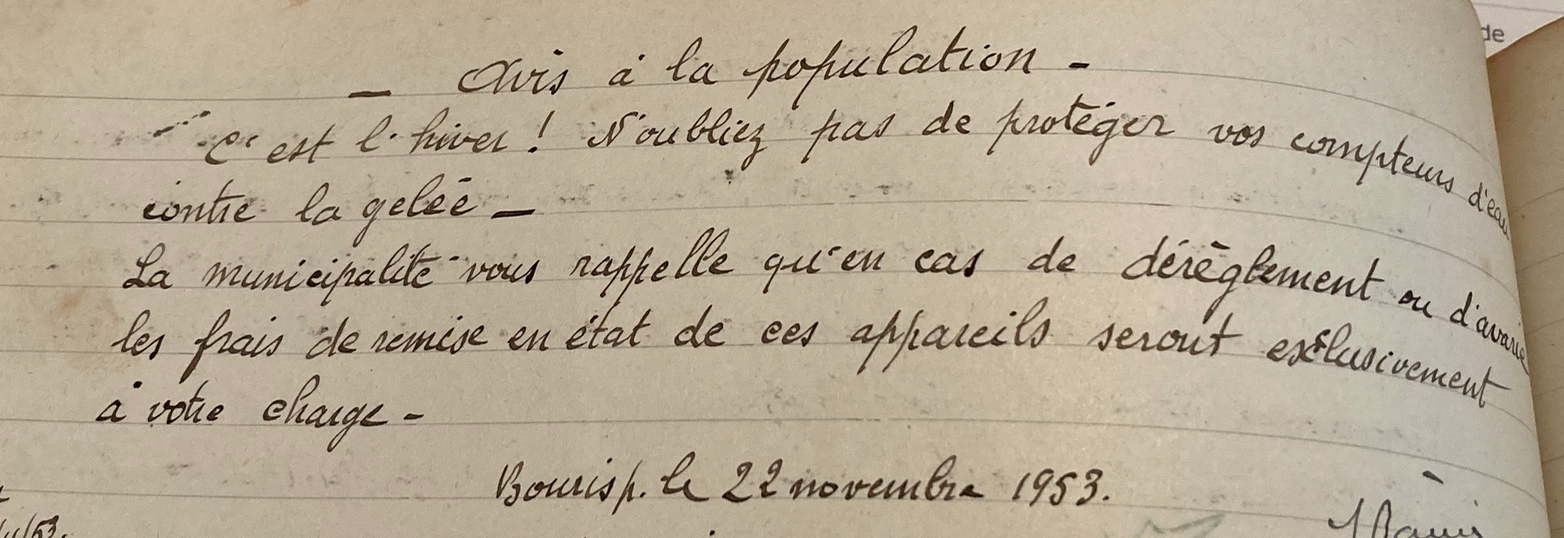 de
— Avis à la population -
C'est l'hiver ! N'oubliez pas de protéger vos compteurs d'eau
contre la gelée —
La municipalité vous rappelle qu'en cas de dérèglement ou d'avarie
les frais de remise en état de ces appareils seront exclusivement
à votre charge -
Bourisp. le 22 novembre 1953.